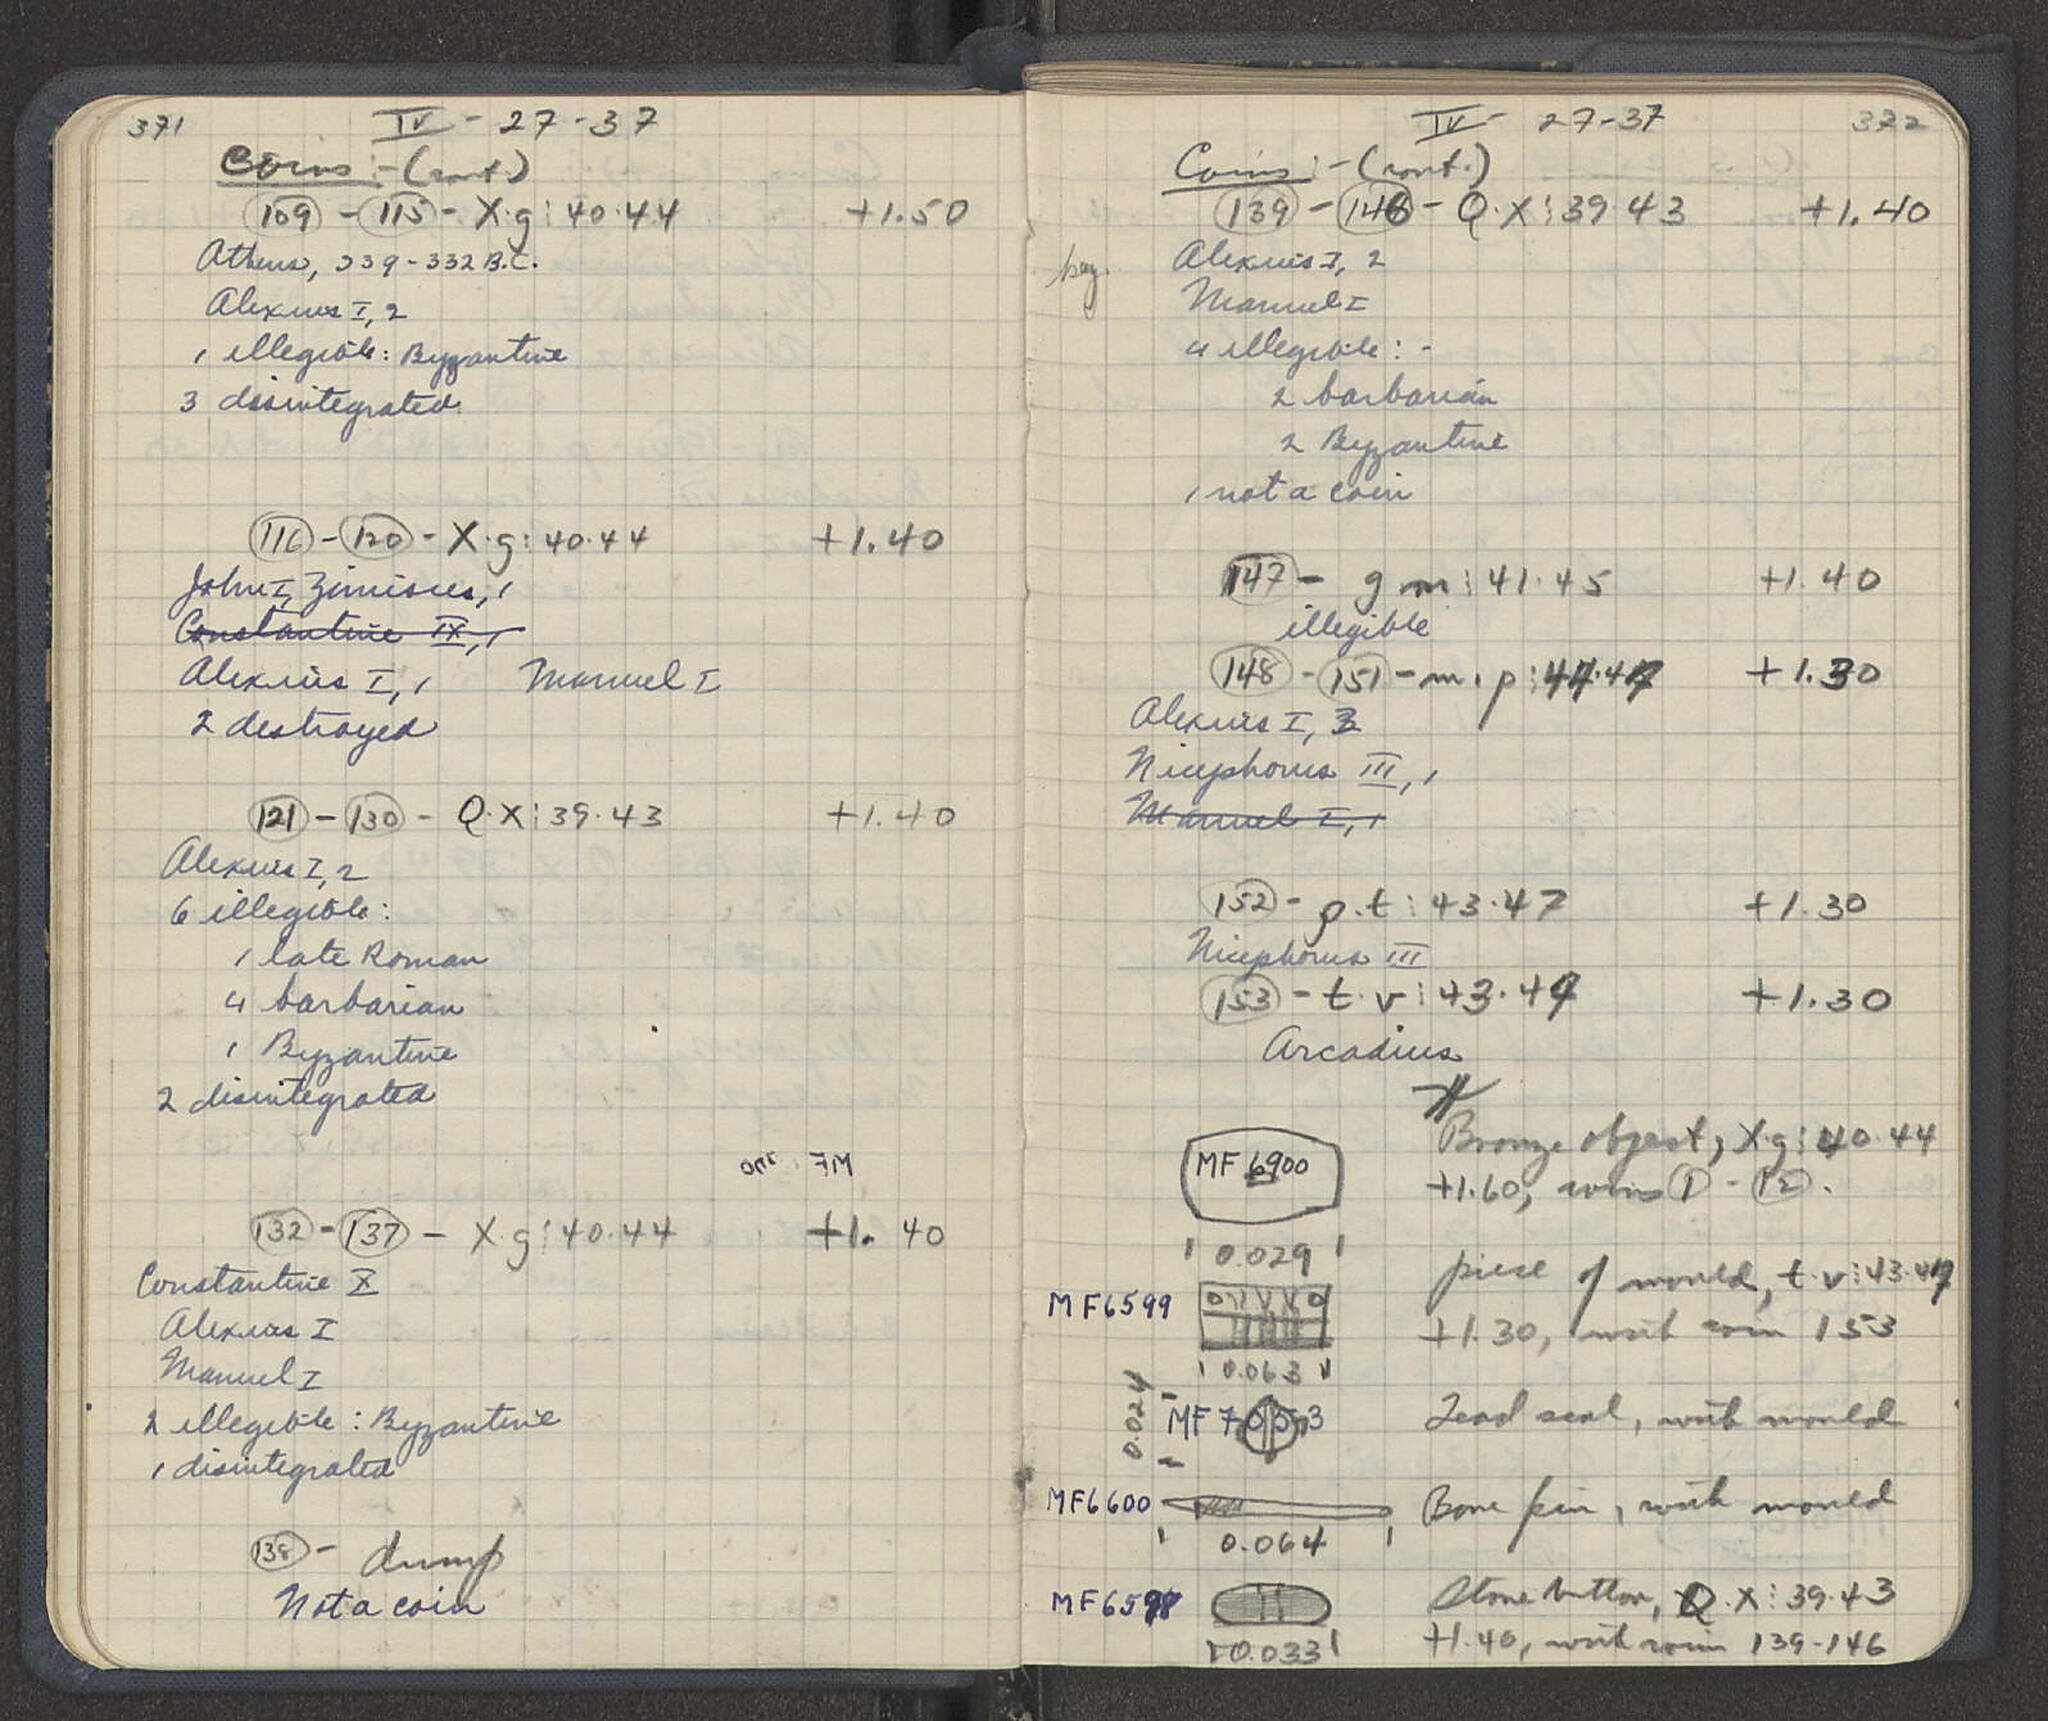 371
IV - 27 - 37
Coins :- (cont.)
109 - 115 - X.g : 40.44 +1.50
Athens, 339-332 B.C.
Alexius I, 2
1 illegible: Byzantine
3 disintegrated
116 - 120 - X.g : 40.44 +1.40
John I, Zimisces, 1
Constantine IX, 1
Alexius I, 1 Manuel I
2 destroyed
121 - 130 - Q.X : 39.43 +1.40
Alexius I, 2
6 illegible:
1 late Roman
4 barbarian
1 Byzantine
2 disintegrated
MF
132 - 137 - X.g : 40.44 +1.40
Constantine X
Alexius I
Manuel I
2 illegible : Byzantine
1 disintegrated
138 - dump
Not a coin
IV - 27-37
372
Coins :- (cont.)
139 - 146 - Q.X : 39.43 +1.40
Alexius I, 2
Manuel I
4 illegible : -
2 barbarian
2 Byzantine
1 not a coin
147 - g.m : 41.45 +1.40
illegible
148 - 151 - m.p : +1.30
Alexius I, 3
Nicephorus III, 1
Manuel I, 1
152 - p.t : 43.47 +1.30
Nicephorus III
153 - t.v : 43.47 +1.30
Arcadius
MF 6900
0.029
Bronze object, X.g : 40.44
+1.60, coins 1 - 12.
MF6599
0.063
piece of mould, t.v : 43.47
+1.30, with coin 153
0.024
MF 7053
Lead seal, with mould
MF6600
0.064
Bone pin, with mould
MF6598
0.033
Stone button, Q.X : 39.43
+1.40, with coins 139-146